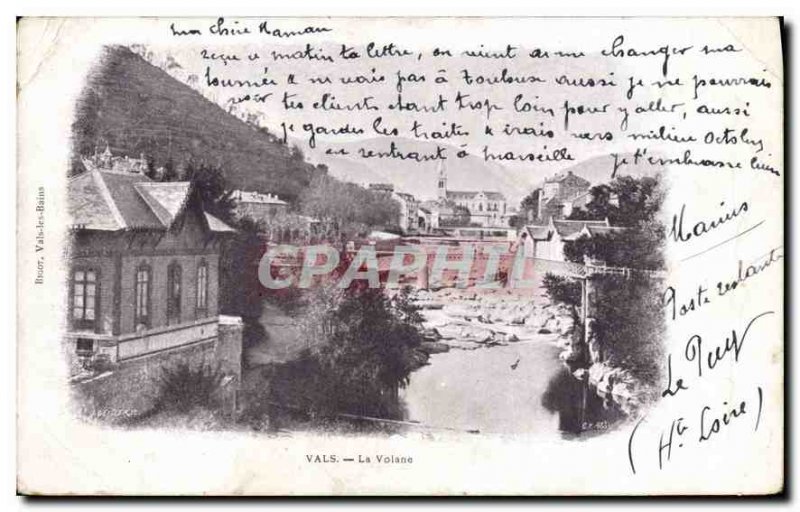 ma chère maman
reçu ce matin ta lettre, on vient de me changer ma
tournée & ne vais pas à Toulouse aussi je ne pourrais
tes clients étant trop loin pour y aller, aussi
je garde les traites & irais vers milieu Octobre
en rentrant à marseille je t'embrasse bien
Marius
Poste restante
Le Puy
(Hte Loire)
BIGOT, Vals-les-Bains
CPAPHIL
VALS. — La Volane